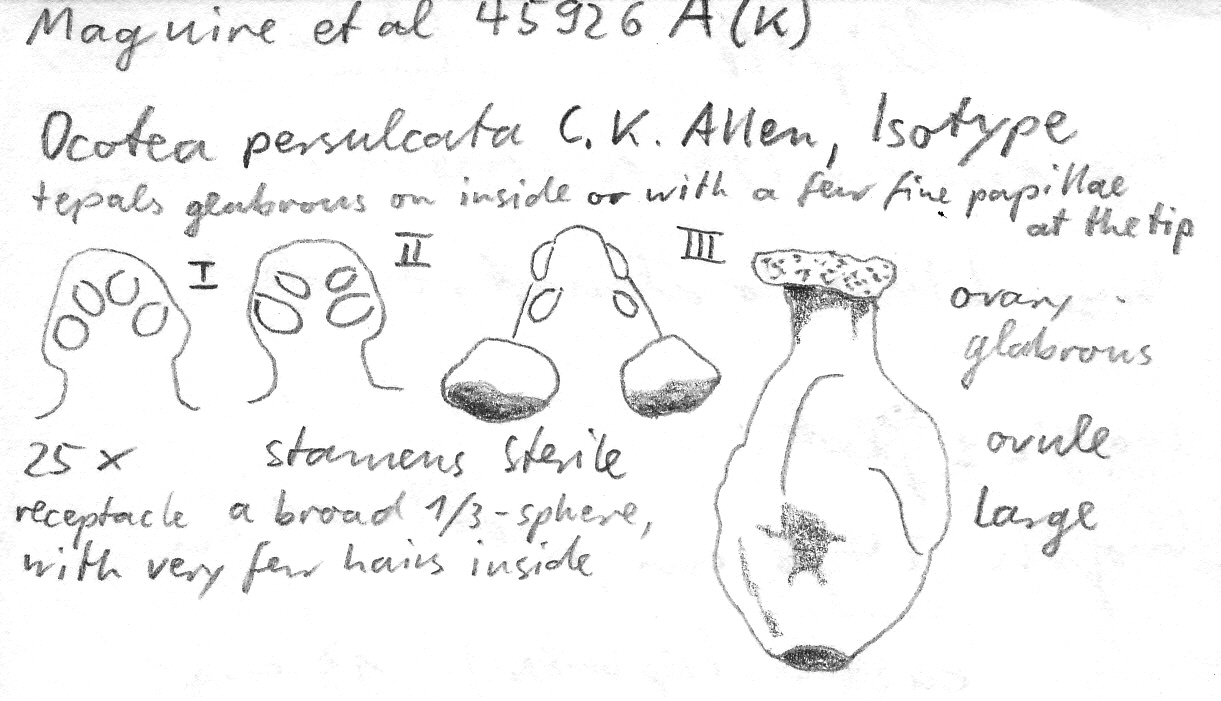 Maguire et al 45926 A (K)
Ocotea persulcata C. K. Allen, Isotype
tepals glabrous on inside or with a few fine papillae
at the tip
I II III
ovary
glabrous
ovule
large
25 x stamens sterile
receptacle a broad 1/3-sphere,
with very few hairs inside